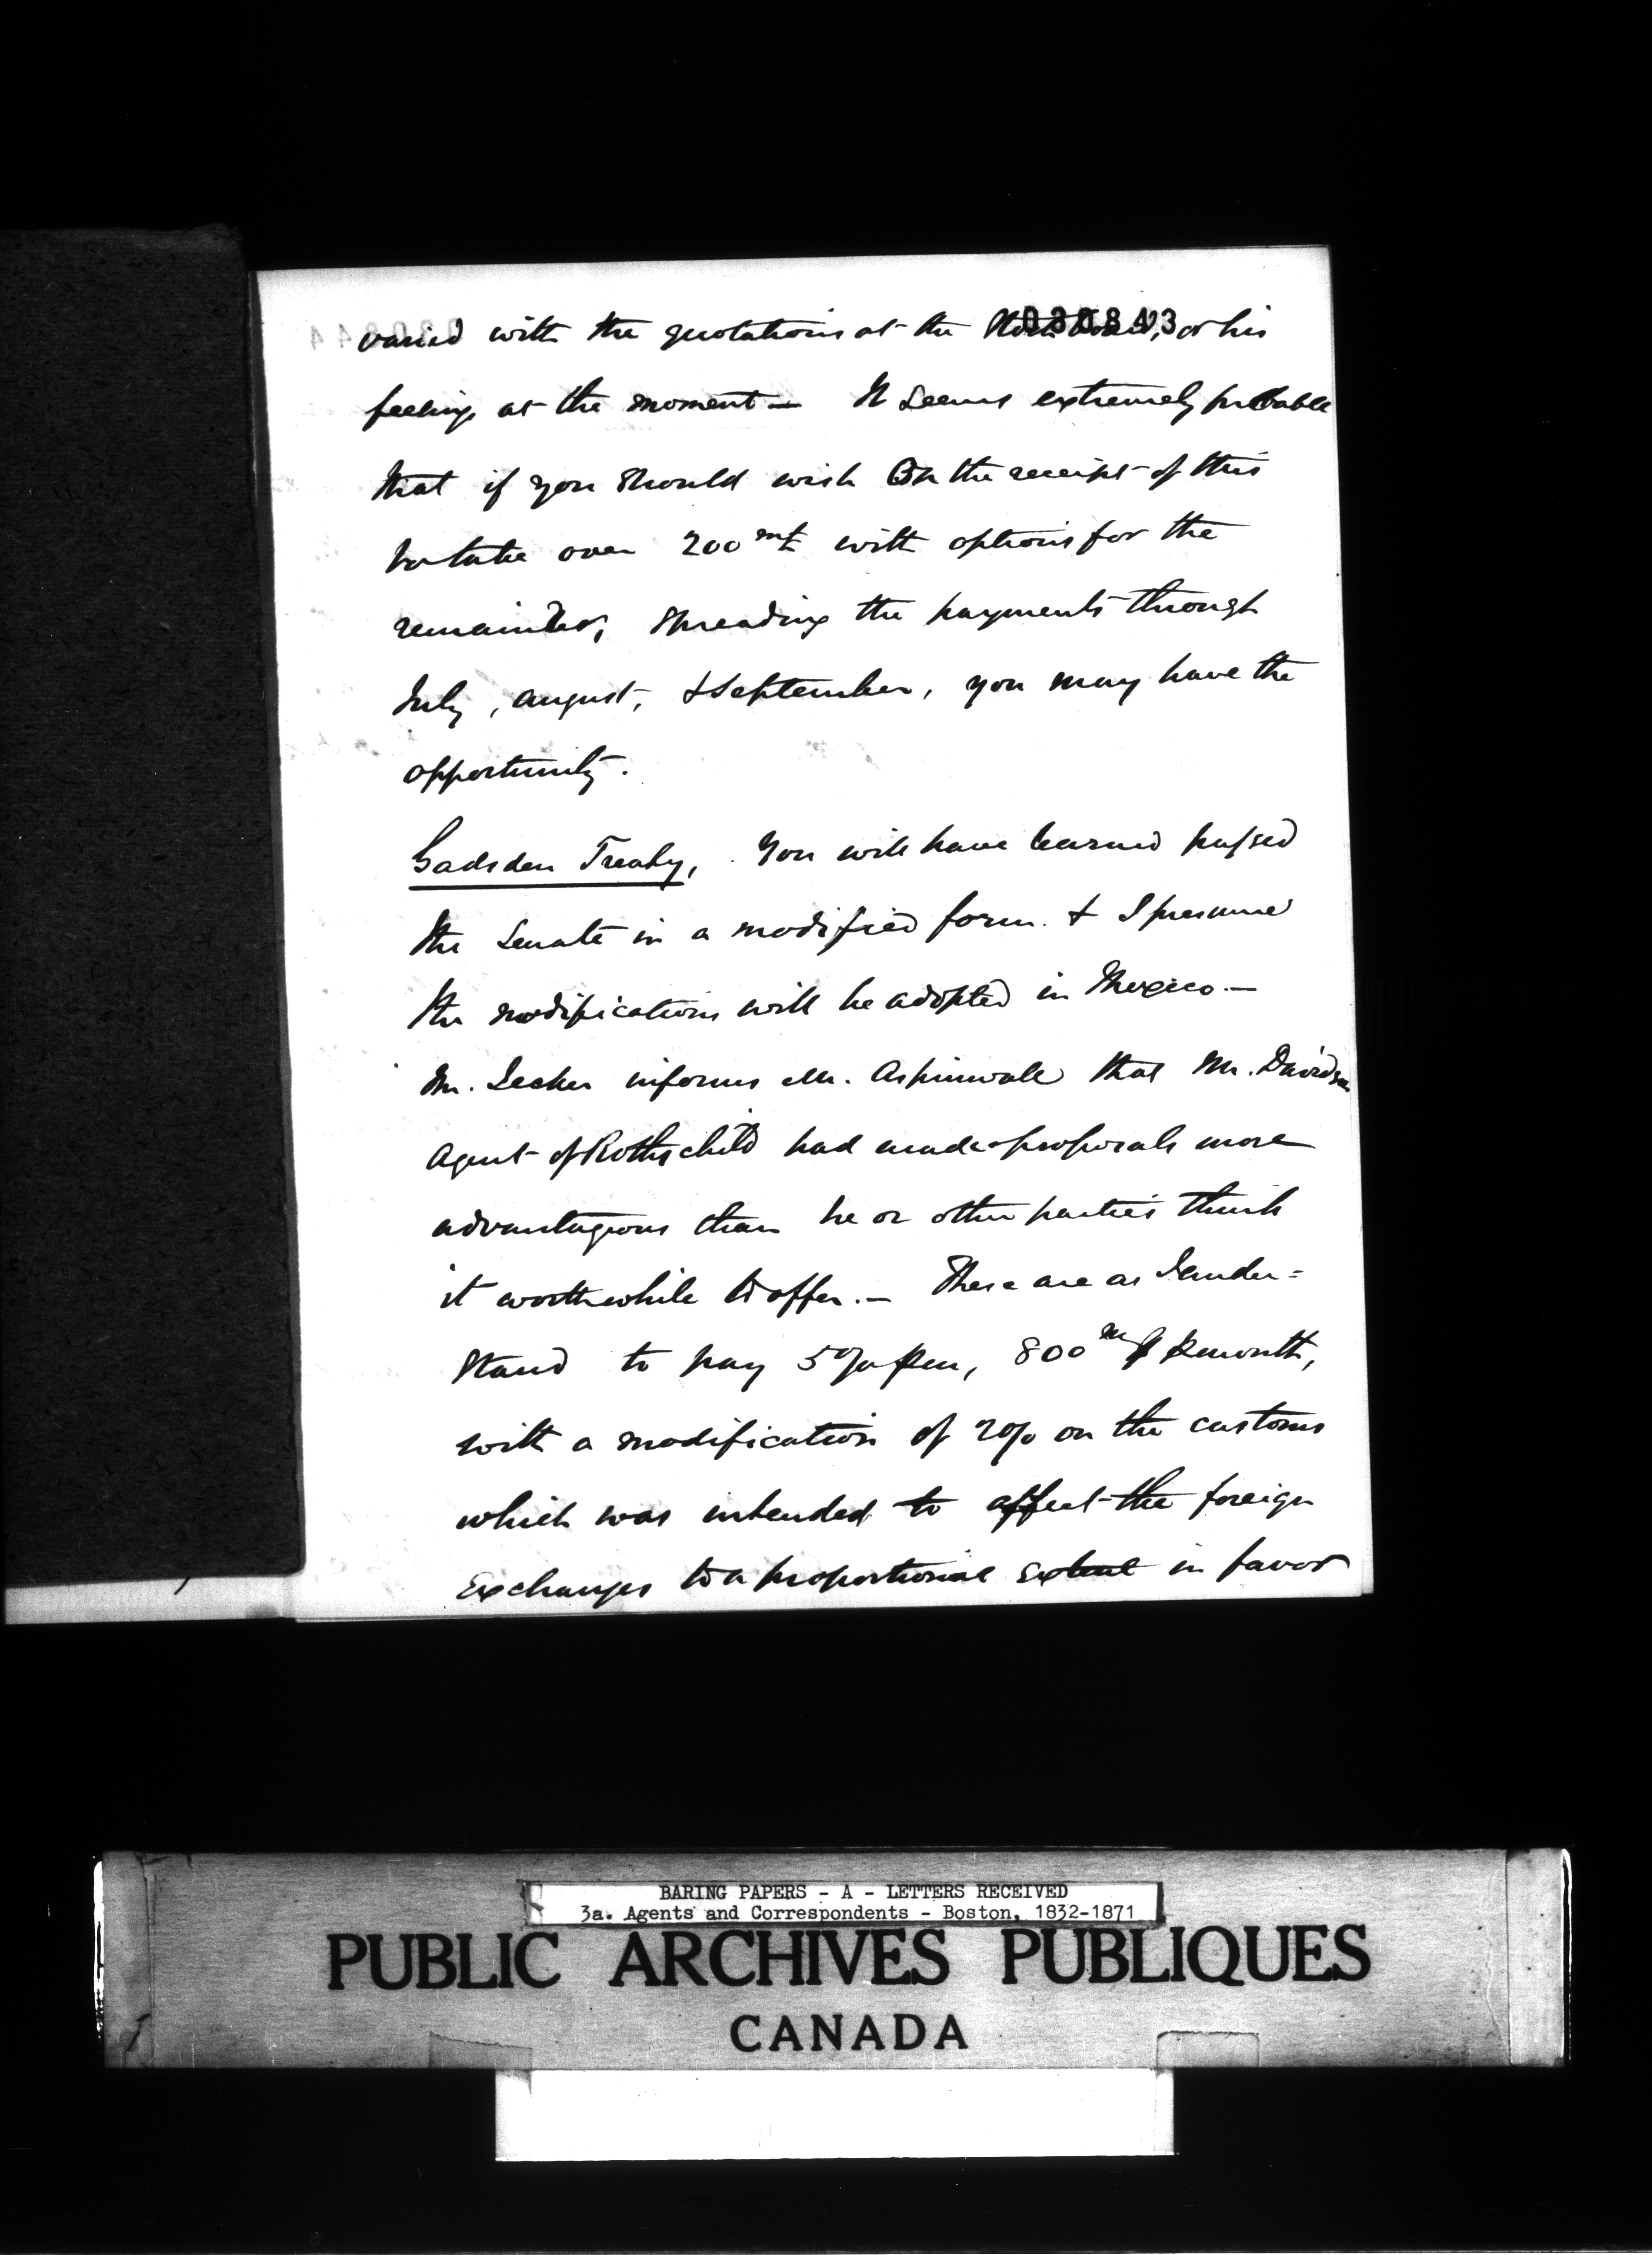 030843
varied with the quotations at the Stock Board, or his
feelings at the moment — It seems extremely probable
that if you should wish on the receipt of this
to take over 200 m£ with options for the
remainder, spreading the payments through
July, august, & September, you may have the
opportunity.
Gadsden Treaty, You will have learned passed
the Senate in a modified form. & I presume
the modifications will be adopted in Mexico —
Mr. informs Mr. Aspinwall that Mr. Davidson
Agent of Rothschild had made proposals more
advantageous than he or other parties think
it worthwhile to offer. — These are as I under=
stand to pay 5% prem, 800 m$ month,
with a modification of 20% on the customs
which was intended to affect the foreign
Exchanges to a proportional extent in favor
BARING PAPERS - A - LETTERS RECEIVED
3a. Agents and Correspondents - Boston, 1832-1871
PUBLIC ARCHIVES PUBLIQUES
CANADA